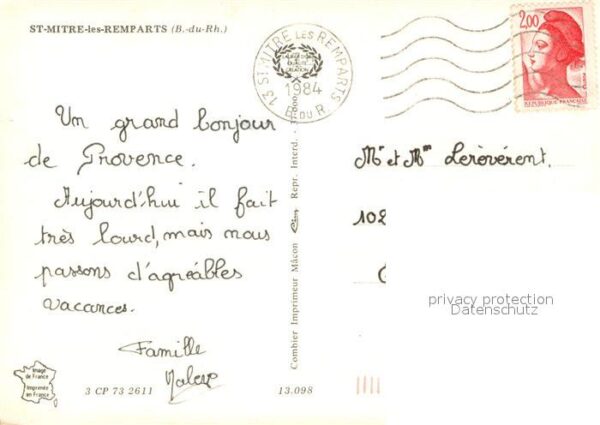 ST-MITRE-les-REMPARTS (B.-du-Rh.)
13 ST-MITRE LES REMPARTS
1984
B DU R
2,00
REPUBLIQUE FRANÇAISE
Un grand bonjour
de Provence.
Aujourd'hui il fait
très lourd, mais nous
passons d'agréables
vacances.
Famille
Combier Imprimeur Mâcon Cim Repr. Interd. -
Mr et Mme Lerévérent.
102
privacy protection
Datenschutz
Image
de France
Imprimée
en France
3 CP 73 2611
13.098